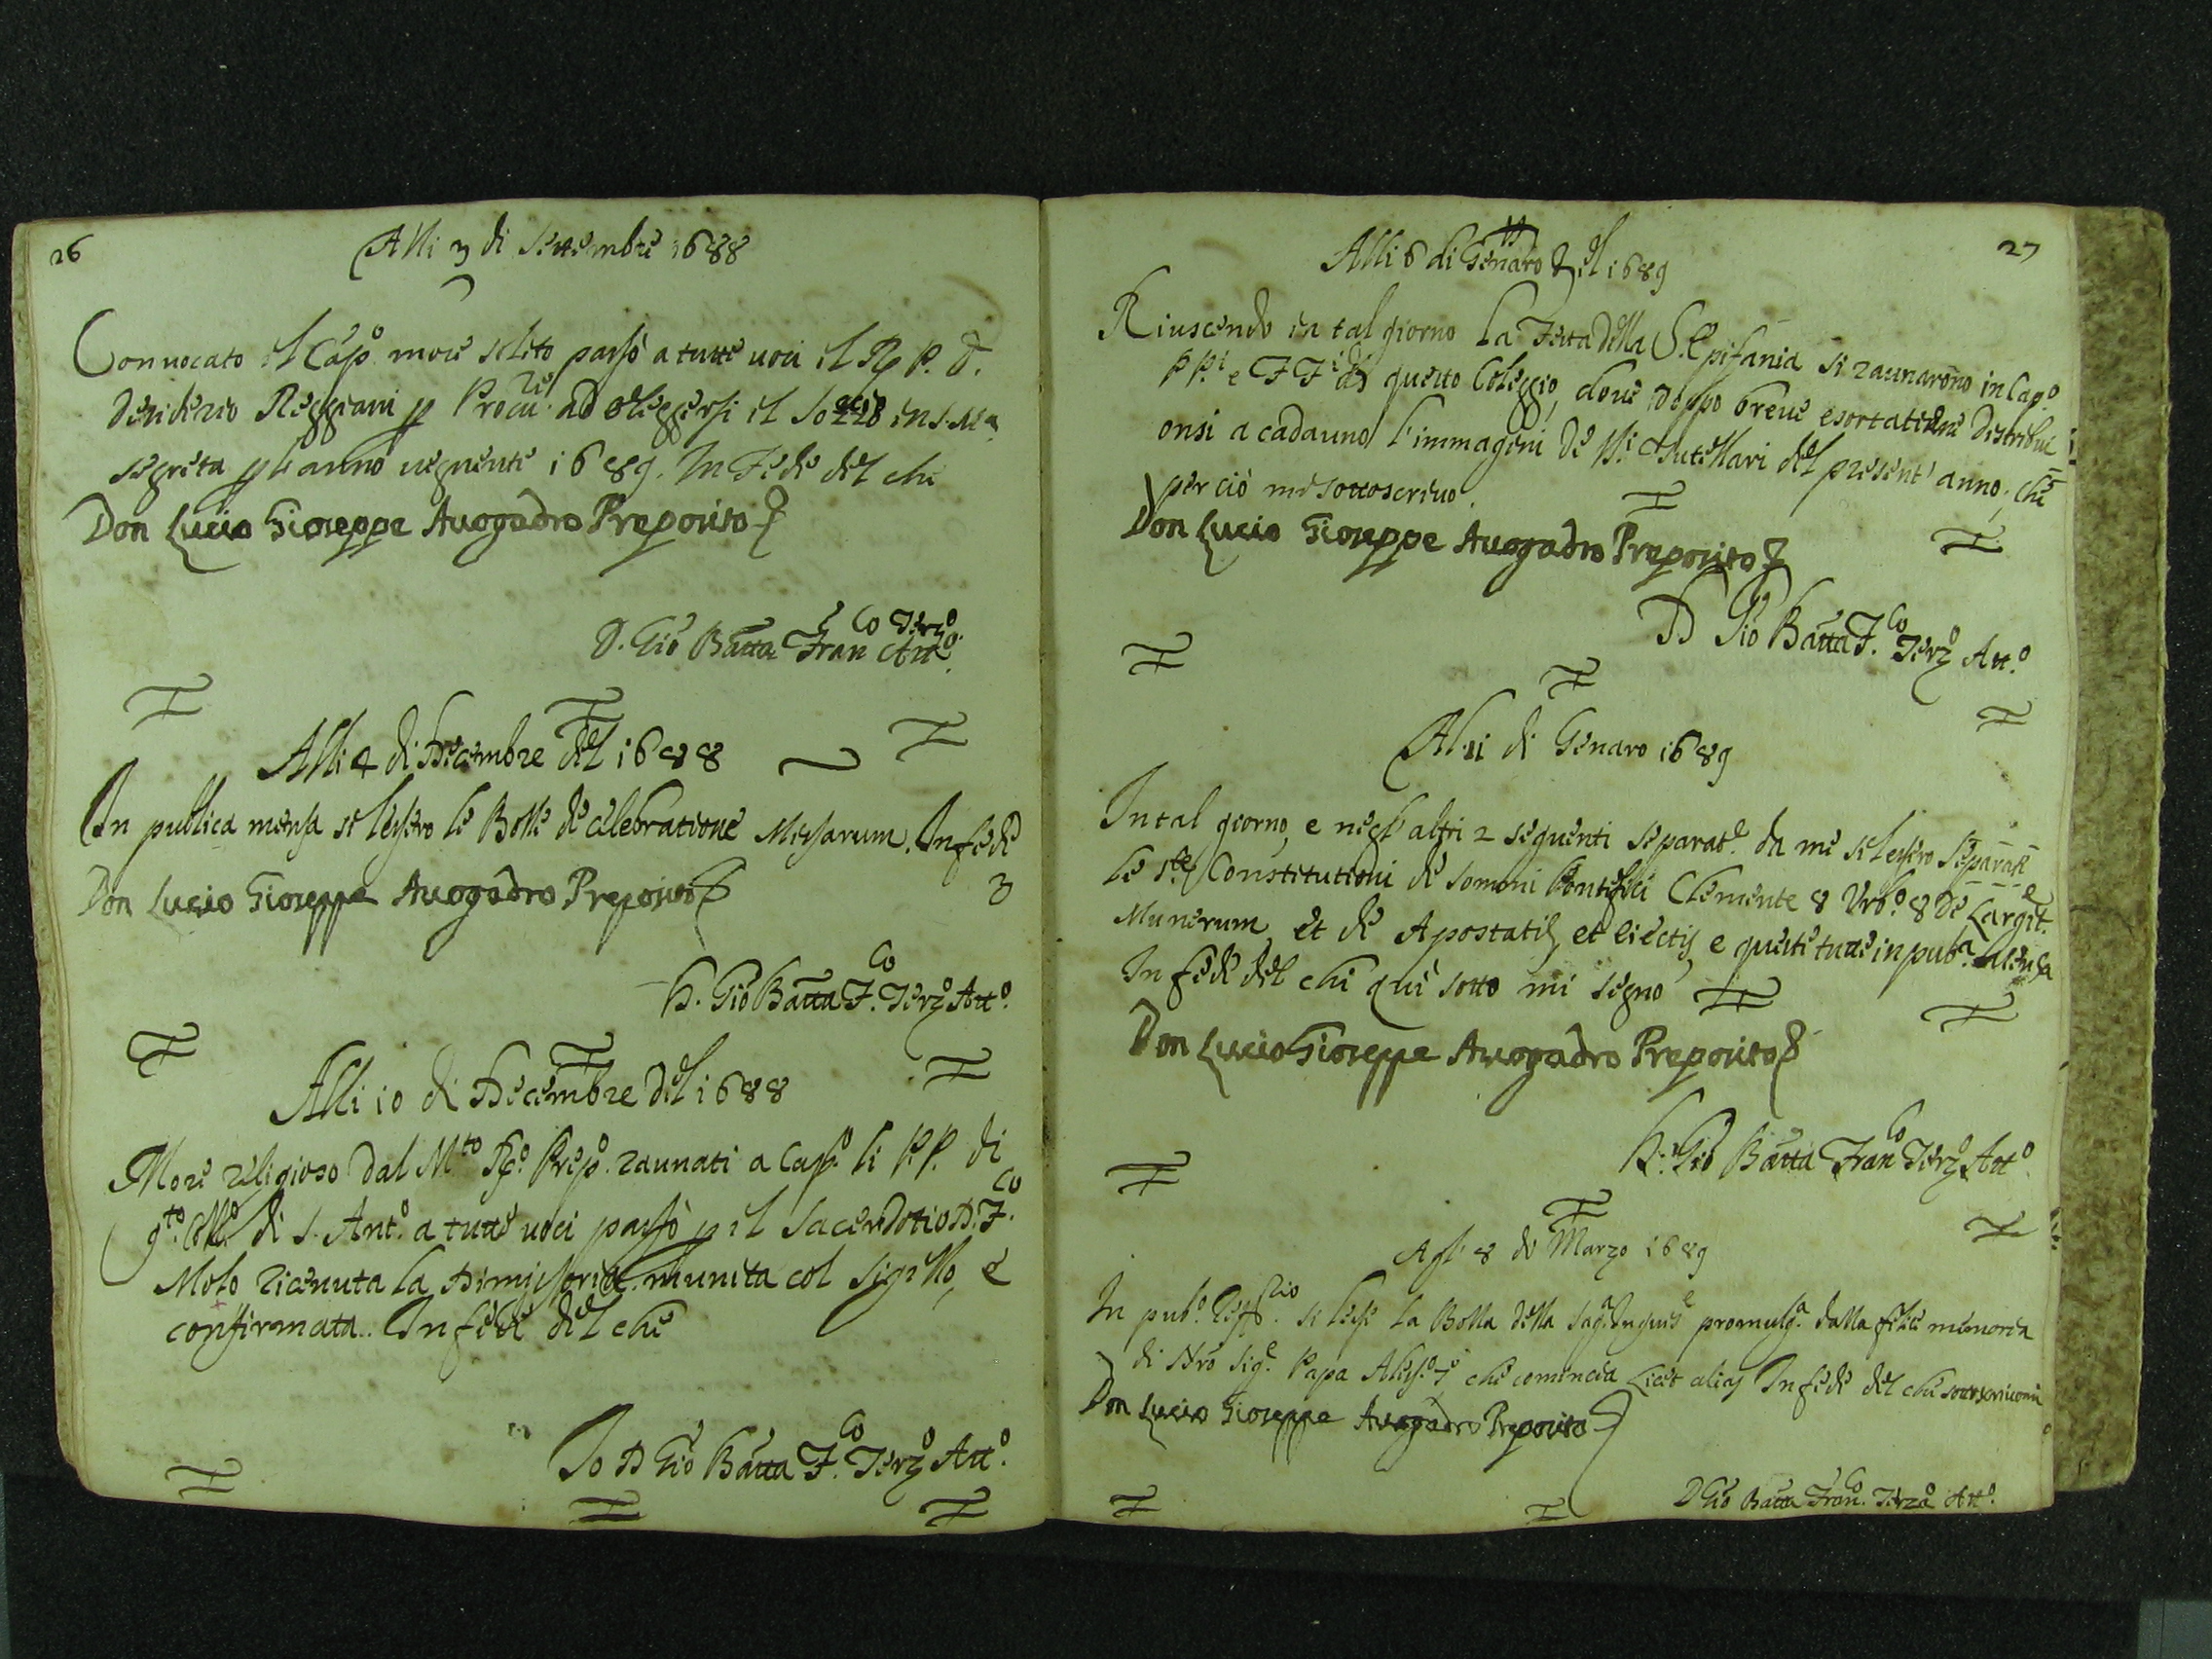 26
Alli 3 di Settembre 1688
Convocato il Cap.o more solito passò a tutte uoci il Rp P. D.
Desiderio Reggiani p Procu.re ad eleggersi il Sozzio in s. M.a
segreta p l'anno uegnente 1689. In Fede del che
Don Lucio Gioseppe Auogadro Preposito
D. Gio Batta Fran.co Terzo Att.o
Alli 4 di Decembre del 1688
In publica mensa si lessero le Bolle de celebratione Missarum. In fede
Don Lucio Gioseppe Auogadro Preposito
3
D. Gio Batta F.co Terzo Att.o
Alli 10 di Decembre del 1688
More religioso dal M.to R.o Prep.o raunati a Cap.o li P.P. di
q.to Coll.o di S. Ant.o a tutte uoci passò p il Sacerdotio D. F.co
Molo riceuuta la Dimissoria munita col sigillo, e
confirmata. In fede del che
Io D Gio Batta F.co Terzo Att.o
27
Alli 6 di Genaro del 1689
Riuscendo in tal giorno la Festa della S. Epifania si raunarono in Cap.o
PP.i e FF.i di questo Coleggio, doue doppo breue esortatione distribui
onsi a cadauno l'immagini de SS.i Tutellari del present' anno, che
per ciò mi sottoscriuo.
Don Lucio Gioseppe Auogadro Preposito
D Gio Batta F.co Terzo Att.o
Al 11 di Genaro 1689
In tal giorno, e negl' altri 2 seguenti separat.e da me si lessero separat.e
le s.te Constitutioni de sommi Pontefici Clemente 8 Urb.o 8 De Largit.e
Munerum, et de Apostatis, et eiectis, e queste tutte in pub.a Mensa
In fede del che quì sotto mi segno
Don Lucio Gioseppe Auogadro Preposito
D. Gio Batta Fran.co Terzo Att.o
Agl' 8 di Marzo 1689
In pub.o Reff.rio si lesse la Bolla della sag.a Inquis.e promulg.a dalla felice memoria
di Nro Sig.e Papa Aless.o 7.o che comincia Licet alias In fede del che sottoscriuomi
Don Lucio Gioseppe Auogadro Preposito
D Gio Batta Fran.co Terzo Att.o